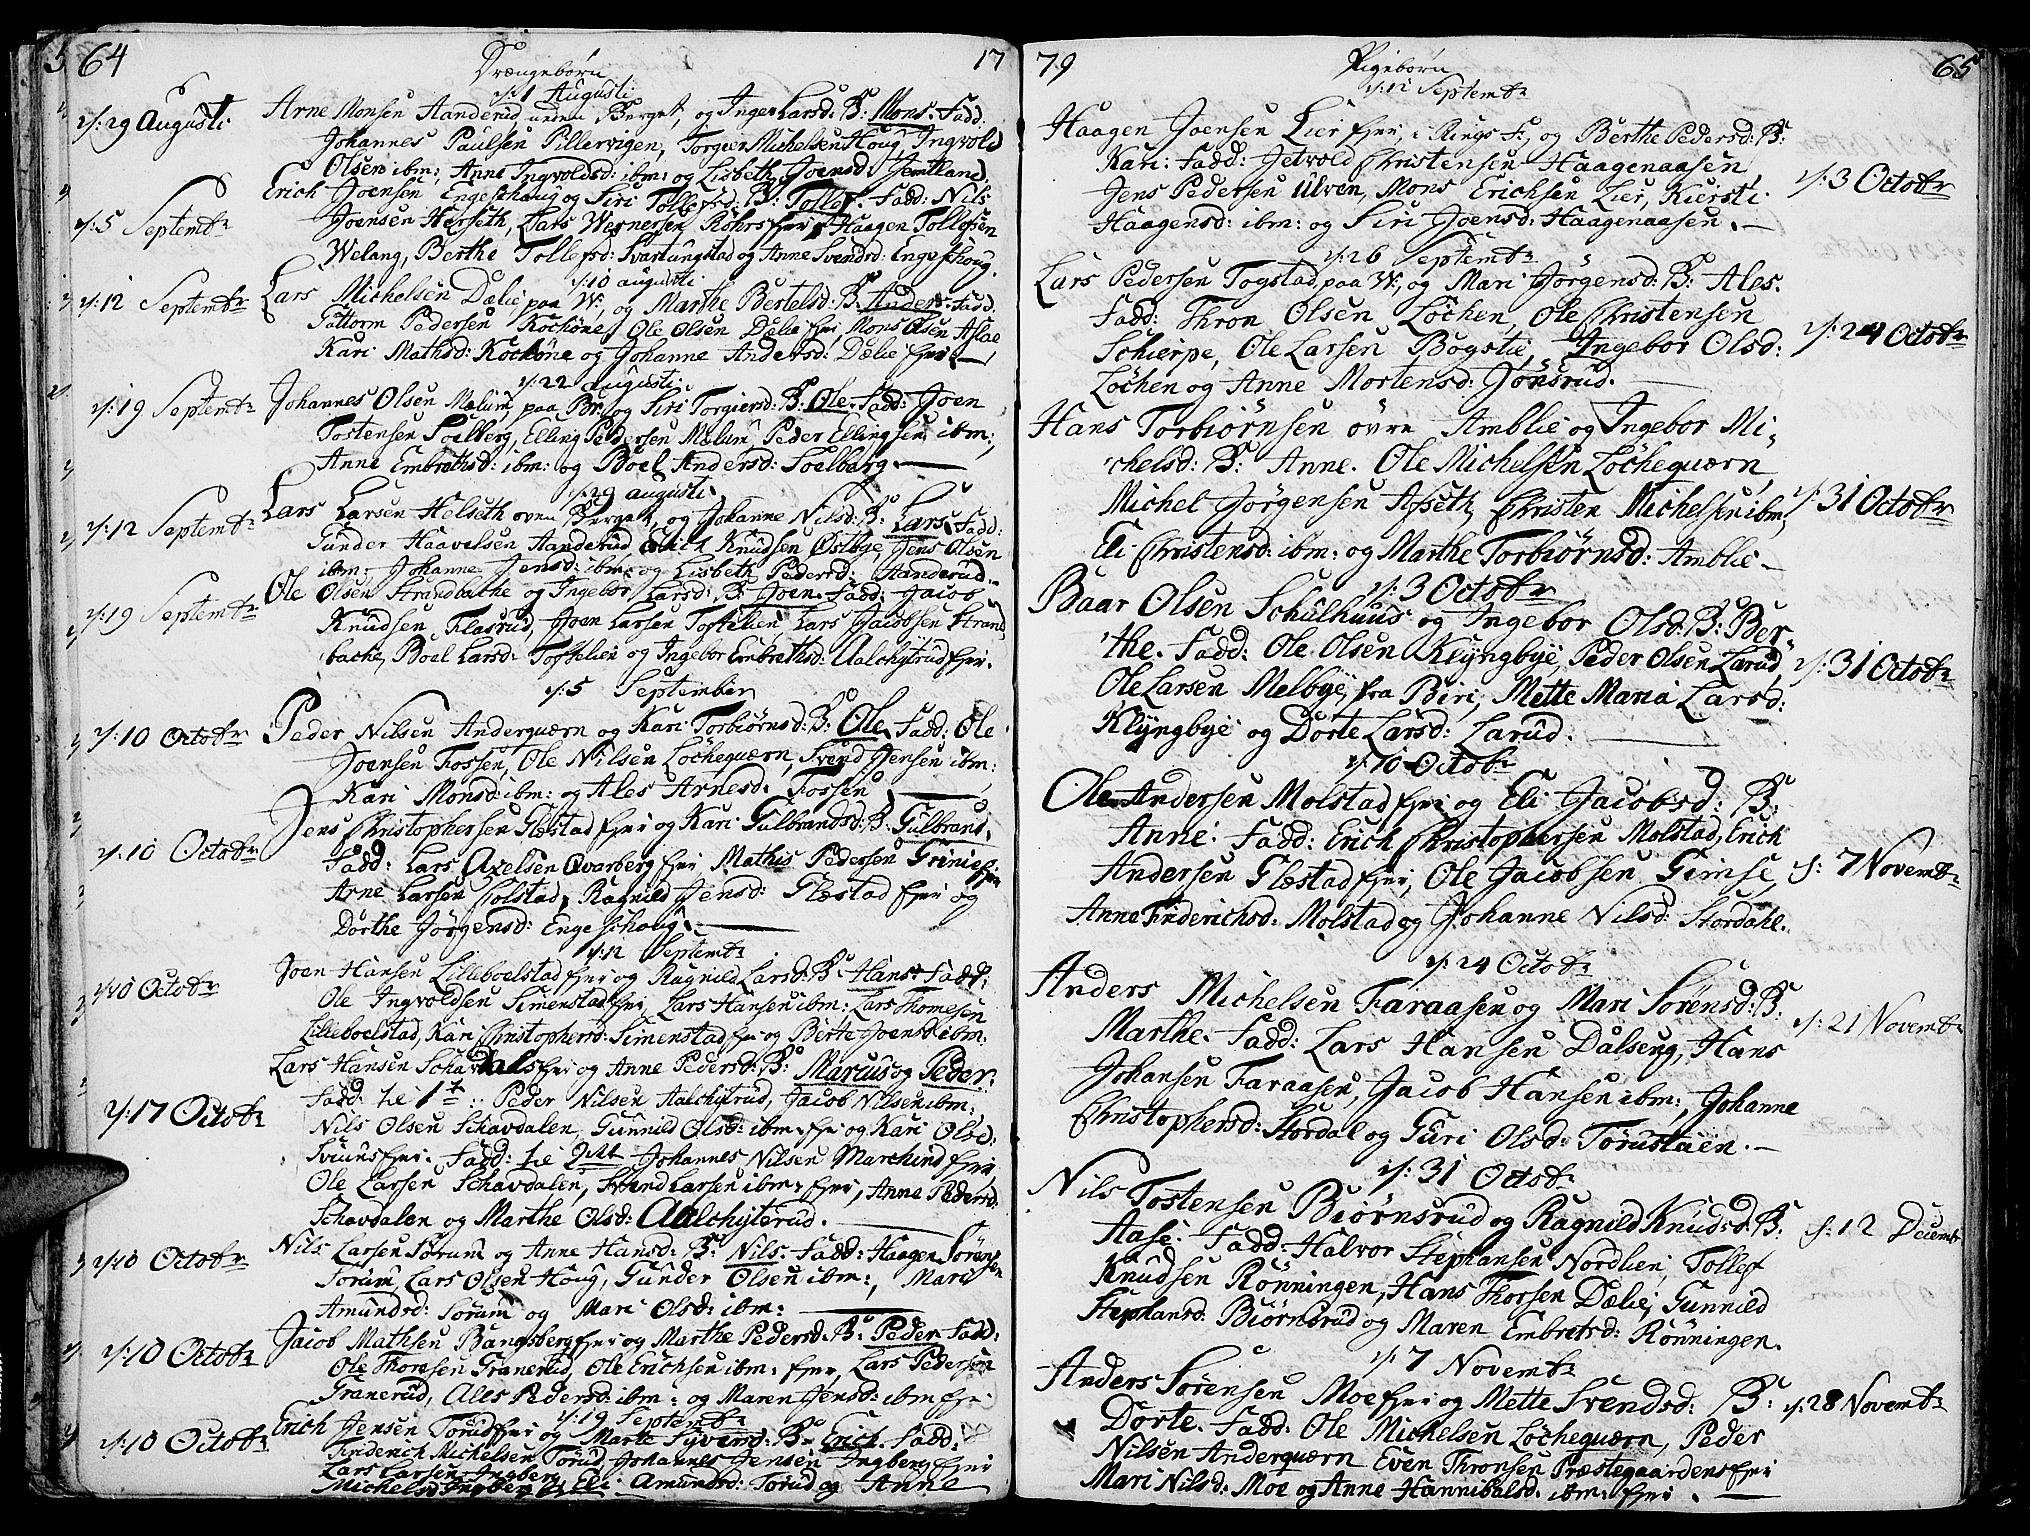 64 Drængebørn 17
d: 1 Augusti
d: 29 Augusti
Arne Monsen Aanderud unden Berget, og Inger Larsd: B: Mons. Fadd:
Johannes Paulsen Pillervigen, Torgier Michelsen Houg, Ingvold
Olsen ibm:, Anne Ingvoldsd: ibm: og Lisbeth Joensd: Jemtland.
d: 5 Septembr
Erich Joensen Engeschoug og Siri Tollefsd: B: Tollef. Fadd: Nils
Joensen Herseth, Lars Wernersen Røhrs Ejer, Haagen Tollefsen
Welang, Berthe Tollefsd: Svartungstad og Anne Svendsd: Engeschoug.
d: 10 augusti
d: 12 Septembr
Lars Michelsen Dælie, paa W:, og Marthe Bertelsd: B: Anders. Fadd:
Guttorm Pedersen Kochøne, Ole Olsen Dælie Ejer, Mons Olsen Aslae
Kari Mathsd: Kochøne og Johanne Andersd: Dælie Ejer.
d: 22 augusti
d: 19 Septembr
Johannes Olsen Mælum, paa Br: og Siri Torgiersd: B: Ole. Fadd: Joen
Tostensen Soelberg, Elling Pedersen Mælum, Peder Ellingsen ibm:,
Anne Embrethsd: ibm: og Boel Andersd: Soelberg.
d: 29 augusti
d: 12 Septembr
Lars Larsen Helseth oven Berget, og Johanne Nilsd: B: Lars. Fadd:
Gunder Haavelsen Aanderud, Erich Knudsen Østbye, Jens Olsen
ibm:, Johanne Jensd: ibm: og Lisbeth Pedersd: Aanderud.
d: 19 Septembr
Ole Olsen Strandbache og Ingebor Larsd: B: Joen. Fadd: Jacob
Knudsen Flasrud, Joen Larsen Toftelien, Lars Jacobsen Strand
bache, Boel Larsd: Toftelien og Ingebor Embrethsd: Aalchytrud Ejer.
d: 5 September
d: 10 Octobr
Peder Nilsen Anderquærn og Kari Torbiørnsd: B: Ole. Fadd: Ole
Joensen Fossen, Ole Nilsen Löchequærn, Svend Jensen ibm:
Kari Monsd: ibm: og Ales Arnesd: Fossen
d: 10 Octobr
Jens Christophersen Glæstad Ejer og Kari Gulbrandsd: B: Gulbrand.
Fadd: Lars Axelsen Qvarberg Ejer, Mathis Pedersen Grinie Ejer
Arne Larsen Holstad, Ragnild Jensd: Glæstad Ejer og
Dorthe Jørgensd: Engeschoug.
d: 12 Septembr
d: 10 Octobr
Joen Hansen Lilleboelstad Ejer og Ragnild Larsd: B: Hans. Fadd:
Ole Ingvoldsen Simenstad Ejer, Lars Hansen ibm: Lars Thomesen
Lilleboelstad, Kari Christophersd: Simenstad Ejer og Berte Joensd: ibm.
d: 17 Octobr
Lars Hansen Schavdals Ejer og Anne Pedersd: B: Marcus og Peder:
Fadd: til 1t :: Peder Nilsen Aalchytrud, Jacob Nilsen ibm:,
Nils Olsen Schavdalen, Gunnild Olsd: ibm: Ejer og Kari Olsd:
Sviuns Ejer. Fadd: til 2dt Johannes Nilsen Marchind Ejer
Ole Larsen Schavdalen, Svend Larsen ibm: Ejer, Anne Pedersd:
Schavdalen og Marthe Olsd: Aalchyterud.
d: 10 Octobr
Nils Larsen Sørum og Anne Hansd: B: Nils. Fadd: Haagen Sørensen
Sørum, Lars Olsen Houg, Gunder Olsen ibm:, Mari
Amundsd: Sørum og Mari Olsd: ibm:
d: 10 Octobr
Jacob Mathsen Bangsberg Ejer og Marthe Pedersd: B: Peder. Fadd:
Ole Thoresen Granerud, Ole Erichsen ibm: Ejer, Lars Pedersen
Granerud, Ales Pedersd: ibm: og Maren Jensd: ibm Ejer
d: 19 Septembr
d: 10 Octobr
Erich Jensen Torud Ejer og Marte Syversd: B: Erich. Fadd:
Friderich Michelsen Torud, Johannes Jensen Ingberg Ejer
Lars Larsen Ingberg, Eli Amundsd: Torud og Anne
Michelsd: Ingberg
79 Pigebørn 65
d: 12 Septembr
Haagen Joensen Lier Ejer, i Rings F:, og Berthe Pedersd: B:
Kari: Fadd: Jetvold Christensen Haagenaasen,
Jens Pedersen Ulven, Mons Erichsen Lier, Kiersti
Haagensd: ibm: og Siri Joensd: Haagenaasen.
d: 3 Octobr
d: 26 Septembr
Lars Pedersen Togstad, paa W:, og Mari Jörgensd: B: Ales.
Fadd: Thron Olsen Löchen, Ole Christensen
Schierpe, Ole Larsen Bogstie, Ingebor Olsd:
Löchen og Anne Mortensd: Jønsrud.
d: 24 Octobr
Hans Torbiørnsen øvre Amblie og Ingebor Mi-
chelsd: B: Anne. Ole Michelsen Löchequærn,
Michel Jörgensen Afseth, Christen Michelsen ibm,
Eli Christensd: ibm: og Marthe Torbiørnsd: Amblie
d: 31 Octobr
d: 3 Octobr
Baar Olsen Schulhuus og Ingebor Olsd: B: Ber-
the. Fadd: Ole Olsen Klyngbye, Peder Olsen Larud,
Ole Larsen Melbye, fra Biri, Mette Maria Larsd:
Klyngbye og Dorte Larsd: Larud.
d: 31 Octobr
d: 10 Octobr
Ole Andersen Molstad Ejer og Eli Jacobsd: B:
Anne. Fadd: Erich Christophersen Molstad, Erich
Andersen Glæstad Ejer, Ole Jacobsen Gimse,
Anne Friderichsd: Molstad og Johanne Nilsd: Stordahl.
d: 7 Novembr
d: 24 Octobr
Anders Michelsen Faraasen og Mari Sørensd: B:
Marthe. Fadd: Lars Hansen Dalseng, Hans
Johansen Faraasen, Jacob Hansen ibm:, Johanne
Christophersd: Stordal og Guri Olsd: Torustuen.
d: 21 Novembr
d: 31 Octobr
Nils Tostensen Biørnsrud og Ragnild Knudsd: B:
Aase. Fadd: Halvor Stephansen Nordlien, Tollef
Knudsen Rønningen, Hans Thorsen Dælie, Gunnild
Stephansd: Biørnsrud og Maren Embretsd: Rønningen.
d: 12 Decembr
d: 7 Novembr
Anders Sørensen Moe Ejer og Mette Svendsd: B:
Dorte. Fadd: Ole Michelsen Löchequærn, Peder
Nilsen Anderquærn Even Thronsen Præstegaardens Ejer
Mari Nilsd: Moe og Anne Hannibalsd: ibm: Ejer.
d: 28 Novembr